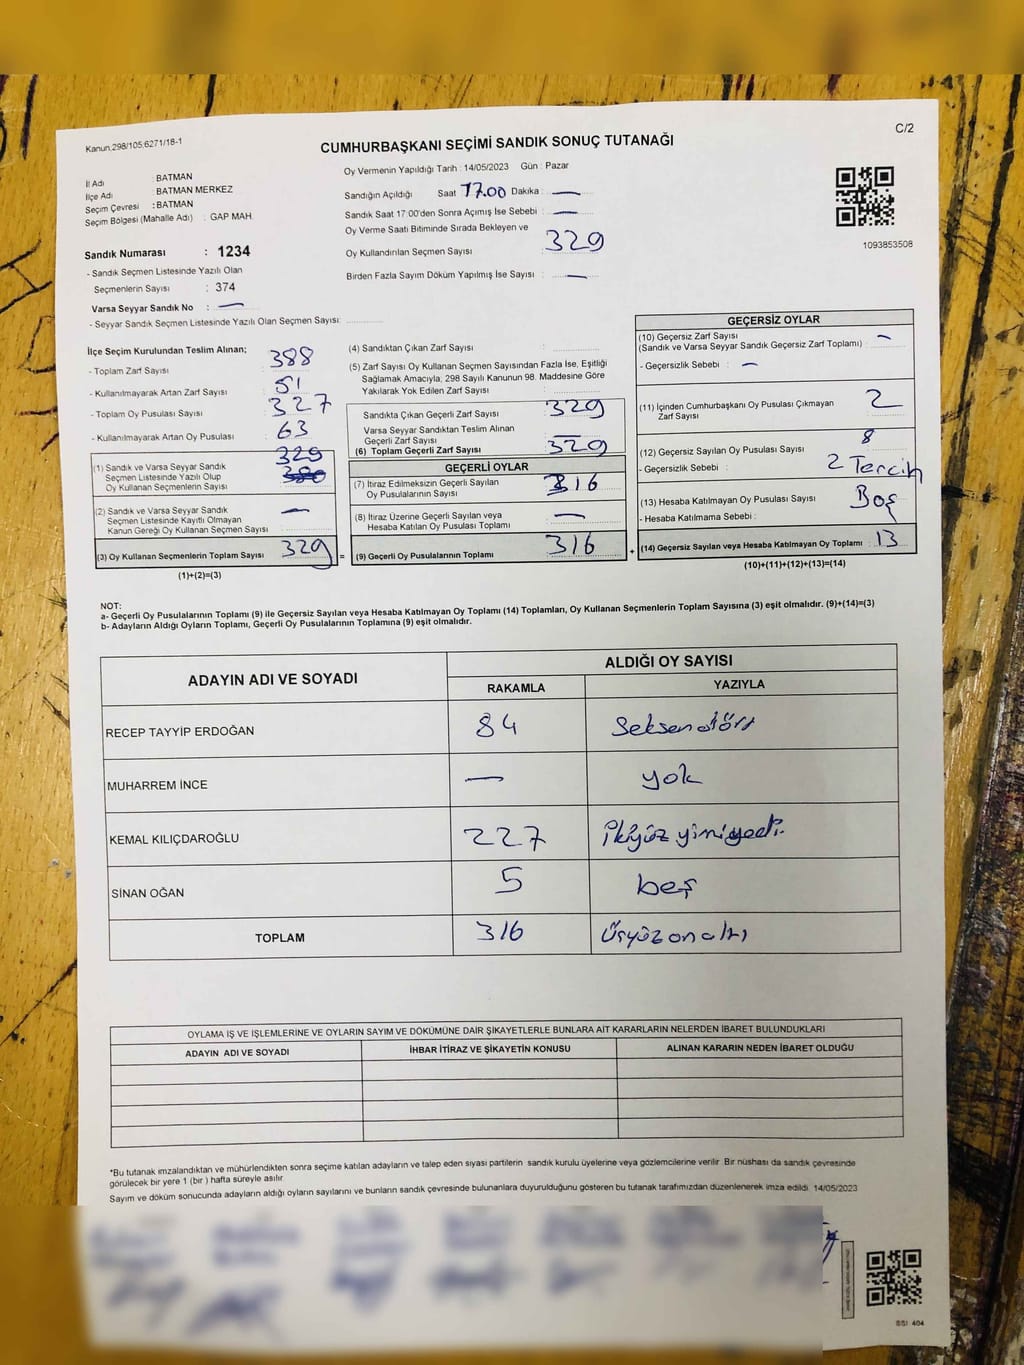 Kanun.298/105,6271/18-1
C/2
CUMHURBAŞKANI SEÇİMİ SANDIK SONUÇ TUTANAĞI
Oy Vermenin Yapıldığı Tarih : 14/05/2023 Gün : Pazar
İl Adı : BATMAN
İlçe Adı : BATMAN MERKEZ
Seçim Çevresi : BATMAN
Seçim Bölgesi (Mahalle Adı) : GAP MAH.
Sandık Numarası : 1234
- Sandık Seçmen Listesinde Yazılı Olan
Seçmenlerin Sayısı : 374
Varsa Seyyar Sandık No : —
- Seyyar Sandık Seçmen Listesinde Yazılı Olan Seçmen Sayısı:
Sandığın Açıldığı Saat 17.00 Dakika : —
Sandık Saat 17:00'den Sonra Açımış İse Sebebi : —
Oy Verme Saati Bitiminde Sırada Bekleyen ve
Oy Kullandırılan Seçmen Sayısı 329
Birden Fazla Sayım Döküm Yapılmış İse Sayısı : —
1093853508
İlçe Seçim Kurulundan Teslim Alınan;
- Toplam Zarf Sayısı : 388
- Kullanılmayarak Artan Zarf Sayısı : 51
- Toplam Oy Pusulası Sayısı : 327
- Kullanılmayarak Artan Oy Pusulası : 63
(1) Sandık ve Varsa Seyyar Sandık
Seçmen Listesinde Yazılı Olup
Oy Kullanan Seçmenlerin Sayısı : 329
(2) Sandık ve Varsa Seyyar Sandık
Seçmen Listesinde Kayıtlı Olmayan
Kanun Gereği Oy Kullanan Seçmen Sayısı : —
(3) Oy Kullanan Seçmenlerin Toplam Sayısı : 329 =
(1)+(2)=(3)
(4) Sandıktan Çıkan Zarf Sayısı :
(5) Zarf Sayısı Oy Kullanan Seçmen Sayısından Fazla İse, Eşitliği
Sağlamak Amacıyla; 298 Sayılı Kanunun 98. Maddesine Göre
Yakılarak Yok Edilen Zarf Sayısı :
Sandıkta Çıkan Geçerli Zarf Sayısı : 329
Varsa Seyyar Sandıktan Teslim Alınan
Geçerli Zarf Sayısı : —
(6) Toplam Geçerli Zarf Sayısı : 329
GEÇERLİ OYLAR
(7) İtiraz Edilmeksizin Geçerli Sayılan
Oy Pusulalarının Sayısı : 316
(8) İtiraz Üzerine Geçerli Sayılan veya
Hesaba Katılan Oy Pusulası Toplamı : —
(9) Geçerli Oy Pusulalarının Toplamı : 316 +
GEÇERSİZ OYLAR
(10) Geçersiz Zarf Sayısı : —
(Sandık ve Varsa Seyyar Sandık Geçersiz Zarf Toplamı)
- Geçersizlik Sebebi : —
(11) İçinden Cumhurbaşkanı Oy Pusulası Çıkmayan
Zarf Sayısı : 2
(12) Geçersiz Sayılan Oy Pusulası Sayısı : 8
- Geçersizlik Sebebi : 2 Tercih
(13) Hesaba Katılmayan Oy Pusulası Sayısı : Boş
- Hesaba Katılmama Sebebi :
(14) Geçersiz Sayılan veya Hesaba Katılmayan Oy Toplamı : 13
(10)+(11)+(12)+(13)=(14)
NOT:
a- Geçerli Oy Pusulalarının Toplamı (9) ile Geçersiz Sayılan veya Hesaba Katılmayan Oy Toplamı (14) Toplamları, Oy Kullanan Seçmenlerin Toplam Sayısına (3) eşit olmalıdır. (9)+(14)=(3)
b- Adayların Aldığı Oyların Toplamı, Geçerli Oy Pusulalarının Toplamına (9) eşit olmalıdır.
ADAYIN ADI VE SOYADI ALDIĞI OY SAYISI
RAKAMLA YAZIYLA
RECEP TAYYİP ERDOĞAN 84 Seksendört
MUHARREM İNCE — yok
KEMAL KILIÇDAROĞLU 227 ikiyüz yimiyedi
SİNAN OĞAN 5 beş
TOPLAM 316 Üçyüzonaltı
OYLAMA İŞ VE İŞLEMLERİNE VE OYLARIN SAYIM VE DÖKÜMÜNE DAİR ŞİKAYETLERLE BUNLARA AİT KARARLARIN NELERDEN İBARET BULUNDUKLARI
ADAYIN ADI VE SOYADI İHBAR İTİRAZ VE ŞİKAYETİN KONUSU ALINAN KARARIN NEDEN İBARET OLDUĞU
*Bu tutanak imzalandıktan ve mühürlendikten sonra seçime katılan adayların ve talep eden siyasi partilerin sandık kurulu üyelerine veya gözlemcilerine verilir. Bir nüshası da sandık çevresinde
görülecek bir yere 1 (bir ) hafta süreyle asılır.
Sayım ve döküm sonucunda adayların aldığı oyların sayılarını ve bunların sandık çevresinde bulunanlara duyurulduğunu gösteren bu tutanak tarafımızdan düzenlenerek imza edildi. 14/05/2023
SSI 404